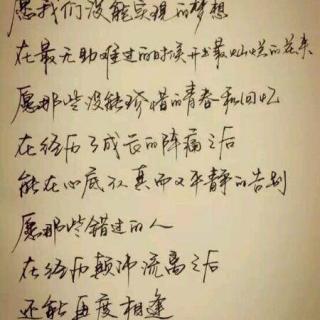 愿我们没能实现的梦想
在最无助难过的时候开出最灿烂的花来
愿那些没能珍惜的青春和回忆
在经历了成长的阵痛之后
能在心底认真而又平静的告别
愿那些错过的人
在经历颠沛流离之后
还能再度相逢